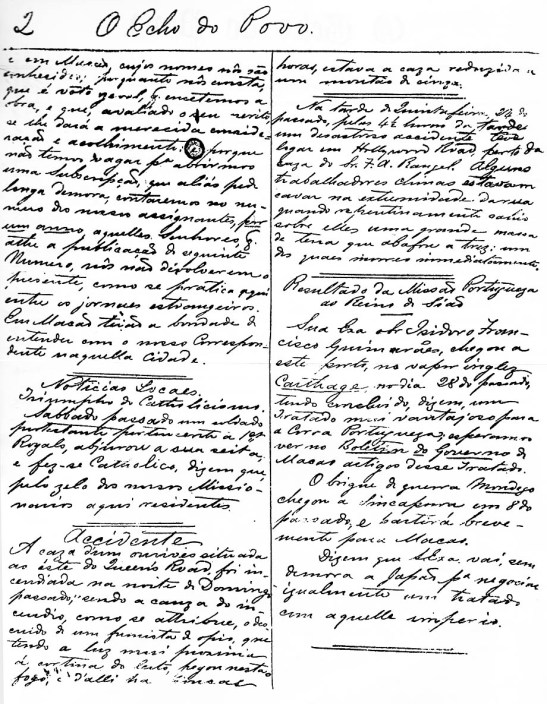 2 O Echo do Povo.
e em Macao, cujos nomes nós são
conhecidos; porquanto nós consta,
que é voto geral, q. encetemos a
obra, e que, avaliado o seu merito
se lhe dará a merecida conside-
ração e acolhimento. E porque
não temos vagar pª abrirmos
uma Subscripção, que aliás ped
longa demora, contaremos no nu-
mero dos nossos assignantes, por
um anno, aquelles Senhores, q.
athe a publicação do seguinte
Numero, nós não devolverem o
presente, como se pratica aqui
entre os jornaes estrangeiros.
Em Macáo terão a bondade de
entender com o nosso Correspon-
dente naquella Cidade.
Noticias Locaes.
Triumpho do Catholicismo.
Sabbado passado um soldado
protestante pertencente á
Royals, abjurou a sua seita,
e fez-se Catholico, dizem que,
pelo zelo dos nossos Missio-
narios aqui residentes.
Accidente
A caza d'um ourives situada
ao éste do Queens Road, foi in-
cendiada na noite de Domingo
passado, sendo a cauza do in-
cendio, como se attribue, o des-
cuido de um fumista de ópio, que
tendo a luz mui proxima
á cortina do leito, pegou nesta
fogo, e d'alli ha
horas, estava a caza reduzida a
um montão de cinza.
Na tarde de Quinta feira, 24 do
passado, pelas 4½ horas da tarde
um desastroso accidente teve
logar em Hollywood Road, perto da
caza do Sr. F. A. Rangel. Alguns
trabalhadores chinas estavam
cavar na extremidade da rua
quando repentinamente cahio
sobre elles uma grande massa
de terra que abafou a trez: um
dos quaes morreu immediatamente.
Resultado da Missão Portugueza
ao Reino de Sião
Sua Exa o Sr. Isidoro Fran-
cisco Guimarães, chegou a
este porto, no vapor inglez
Carthage, no dia 28 do passado,
tendo concluido, dizem, um
Tratado mui vantajoso para
a Coroa Portugueza; esperamos
ver no Boletim do Governo de
Macao artigos desse Tratado.
O brigue de guerra Mondego
chegou a Sincapoura em 8 do
passado, e partirá breve-
mente para Macao.
Dizem que S. Exa. vai, sem
demora a Japão, pª negociar
igualmente um tratado
com aquelle imperio.